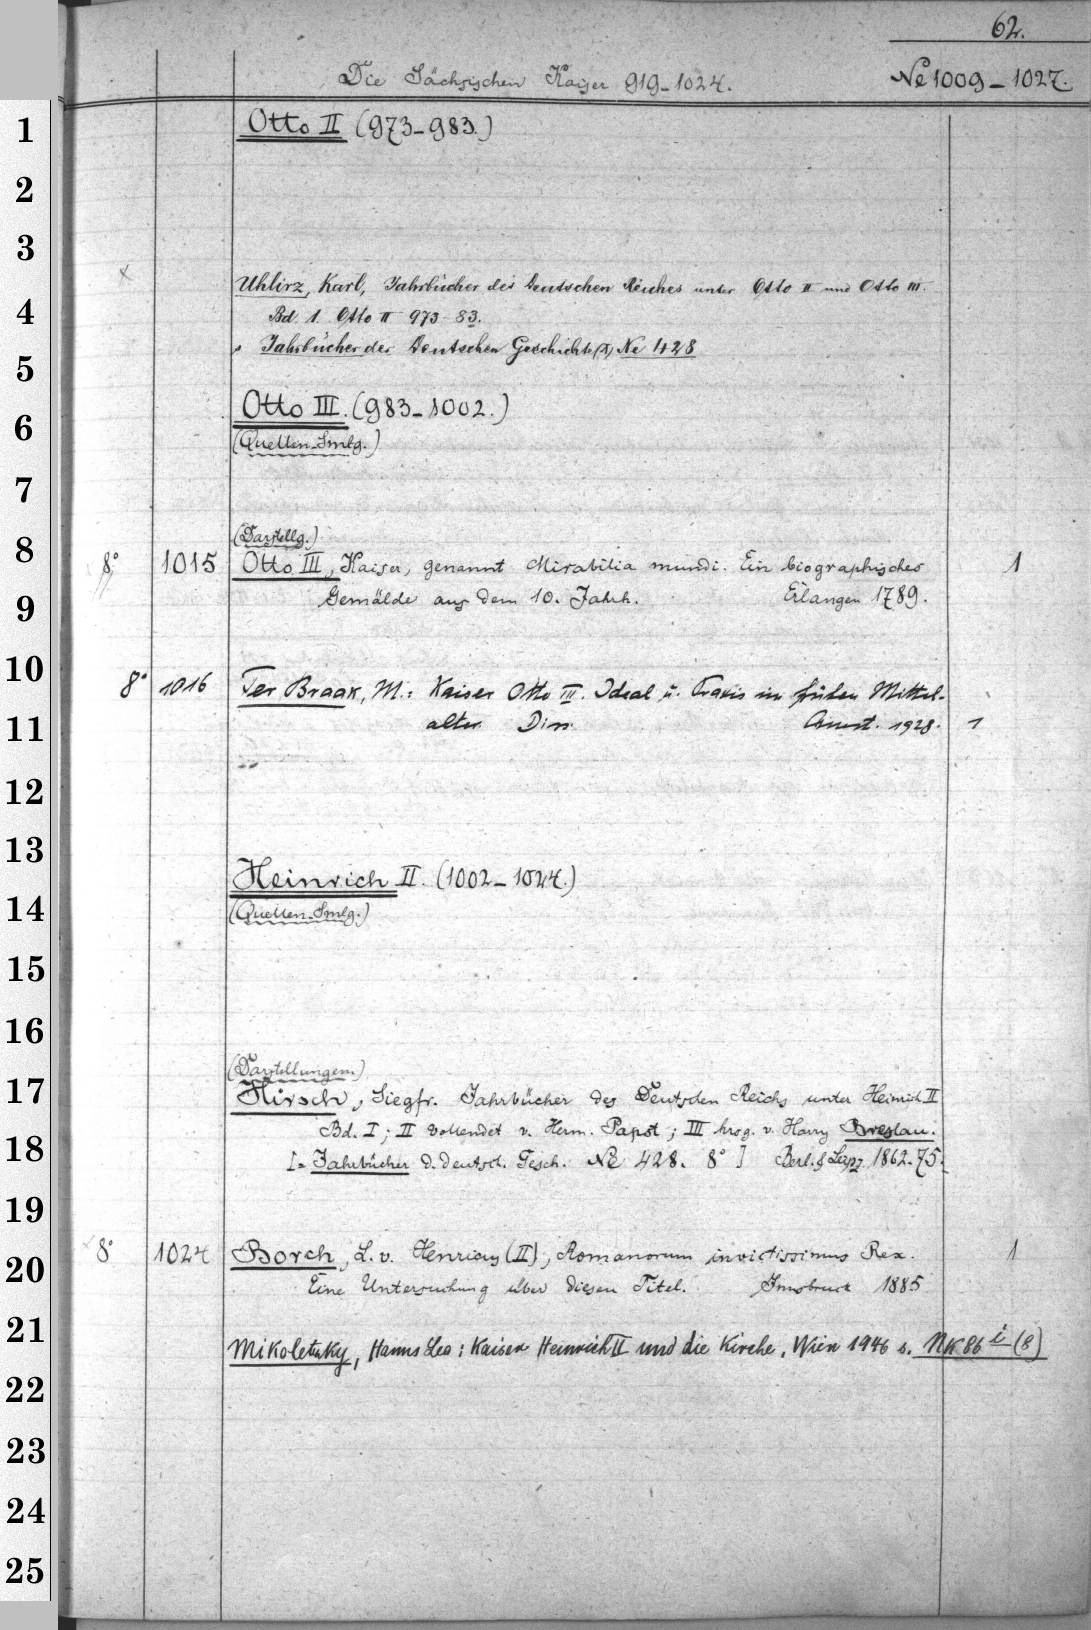 62.
Die Sächsischen Kaiser 919-1024. Ne 1009-1027.
1
Otto II (973-983.)
2
3
Uhlirz, Karl, Jahrbücher des Deutschen Reiches unter Otto II und Otto III.
4
Bd. 1. Otto II 973-83.
s. Jahrbücher der Deutschen Geschichte Ne 428
5
Otto III. (983-1002.)
6
(Quellen-Smlg.)
7
(Darstellg.)
8
8° 1015 Otto III, Kaiser, genannt Mirabilia mundi. Ein biographisches 1
9
Gemälde aus dem 10. Jahrh. Erlangen 1789.
10
8° 1016 Ter Braak, M.: Kaiser Otto III. Ideal u. Praxis im frühen Mittel-
11
alter Diss. Amst. 1928. 1
12
13
Heinrich II. (1002-1024.)
14
(Quellen-Smlg.)
15
16
(Darstellungen.)
17
Hirsch, Siegfr. Jahrbücher des Deutschen Reichs unter Heinrich II
Bd. I; II vollendet v. Herm. Papst; III hrsg. v. Harry Breslau.
18
[= Jahrbücher d. deutsch. Gesch. Ne 428. 8°] Berl. & Leipz. 1862-75.
19
8° 1024 Borch, L. v. Henricus (II), Romanorum invictissimus Rex. 1
20
Eine Untersuchung über diesen Titel. Innsbruck 1885
21
Mikoletzky, Hanns Leo: Kaiser Heinrich II und die Kirche, Wien 1946 s. Nk 86 i (8)
22
23
24
25